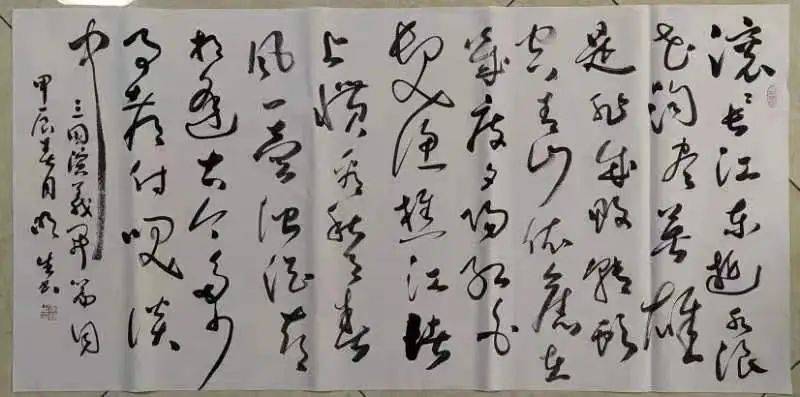 滚〻长江东逝水浪
花淘尽英雄
是非成败转头
空青山依旧在
几度夕阳红白
发渔樵江渚
上惯看秋月春
风一壶浊酒喜
相逢古今多少
事都付笑谈
中
三国演义开篇词
甲辰春月明生书